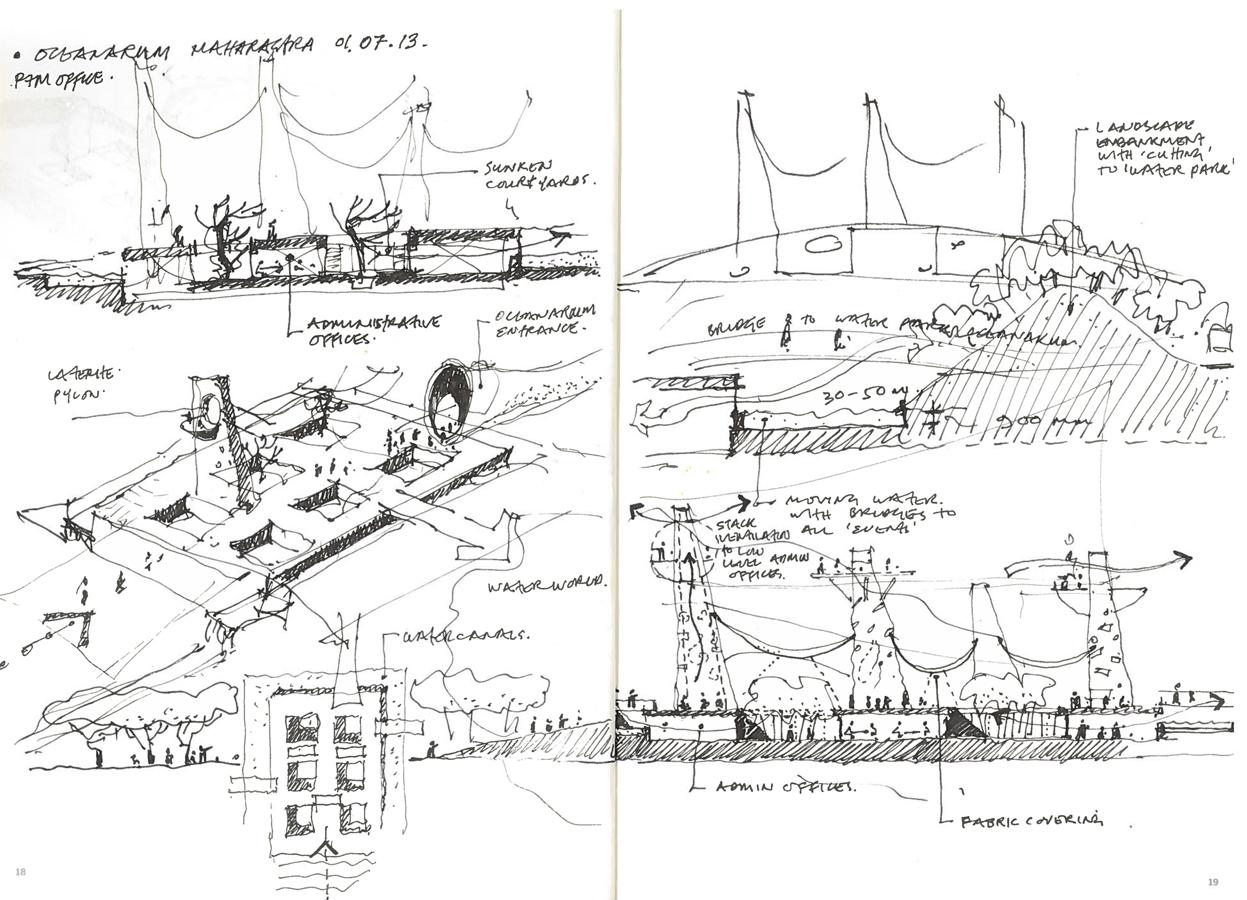 • OCEANARIUM MAHARASTRA 01.07.13.
PTM OFFICE.
SUNKEN
COURTYARDS.
ADMINISTRATIVE
OFFICES.
OCEANARIUM
ENTRANCE.
LATERITE
PYLON.
WATERWORLD.
WATER CANALS.
18
LANDSCAPE
EMBANKMENT
WITH 'CUTTING'
TO 'WATER PARK'
BRIDGE TO WATER PARK/OCEANARIUM.
30-50 m.
900 mm
MOVING WATER.
WITH BRIDGES TO
ALL 'EVENTS'
STACK
VENTILATION
TO LOW
LEVEL ADMIN
OFFICES.
ADMIN OFFICES.
FABRIC COVERING
19